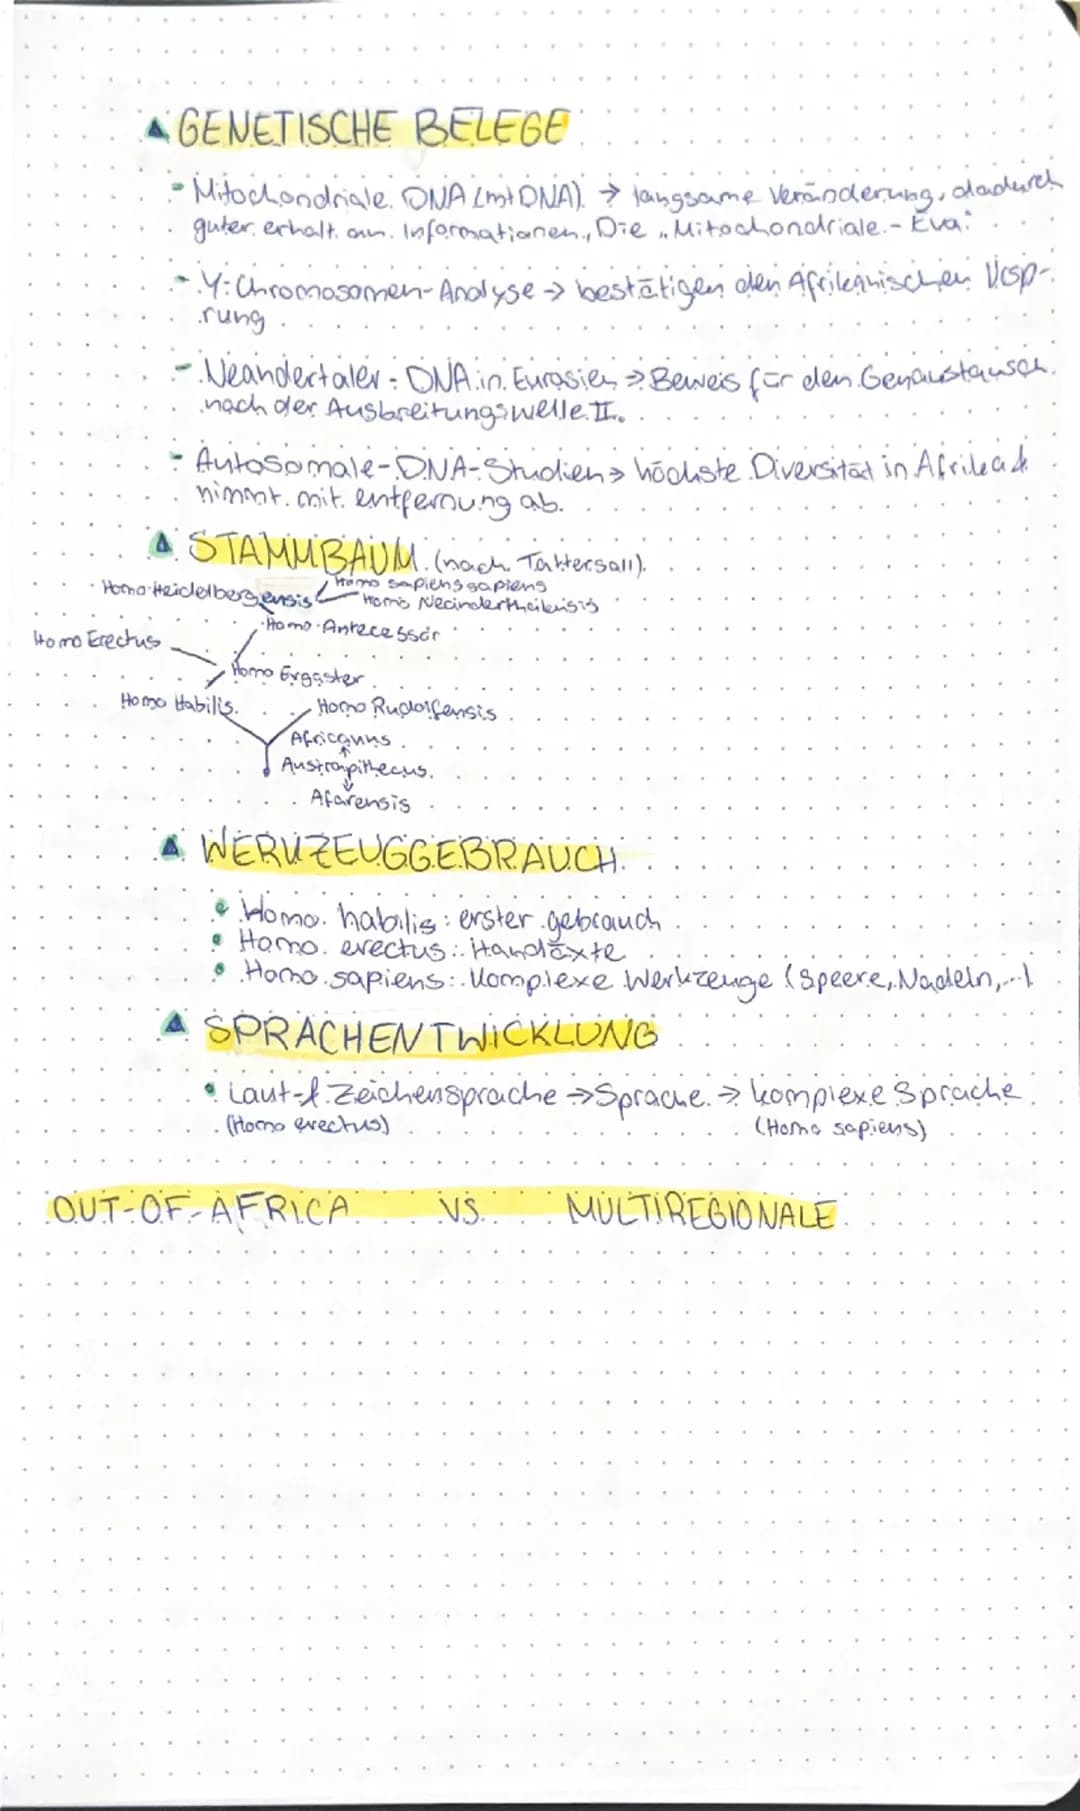 GENETISCHE BELEGE
- Mitochondriale DNA (mtDNA) → langsame Veränderung, dadurch
guter erhalt an Informationen, Die „Mitochondriale - Eva"
- Y-Chromosomen-Analyse → bestätigen den Afrikanischen Ursp-
rung
- Neandertaler-DNA in Eurasien → Beweis für den Genaustausch
nach der Ausbreitungswelle II.
- Autosomale-DNA-Studien → höchste Diversität in Afrika &
nimmt mit entfernung ab.
STAMMBAUM (nach Tattersall)
Homo sapiens sapiens
Homo Heidelbergensis Homo Neanderthalensis
Homo Antecessor
Homo Erectus
Homo Ergaster
Homo Habilis Homo Rudolfensis
Africanus
↑
Austrolpithecus
↓
Afarensis
WERKZEUGGEBRAUCH
• Homo habilis: erster gebrauch
• Homo erectus: Handäxte
• Homo sapiens: Komplexe Werkzeuge (Speere, Nadeln,...)
SPRACHENTWICKLUNG
• Laut-& Zeichensprache → Sprache → komplexe Sprache
(Homo erectus) (Homo sapiens)
OUT-OF-AFRICA VS. MULTIREGIONALE